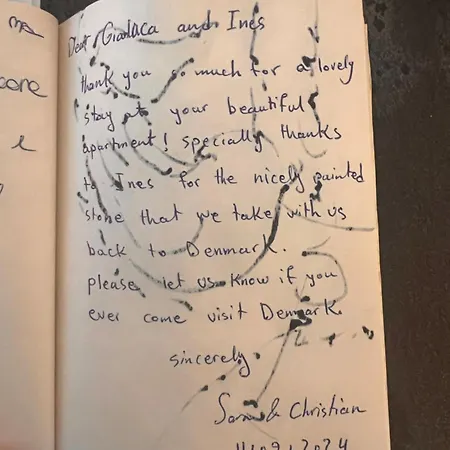 Dear Gianluca and Ines
thank you so much for a lovely
stay at your beautiful
apartment! specially thanks
to Ines for the nicely painted
stone that we take with us
back to Denmark.
please let us know if you
ever come visit Denmark
sincerely.
& Christian
2024